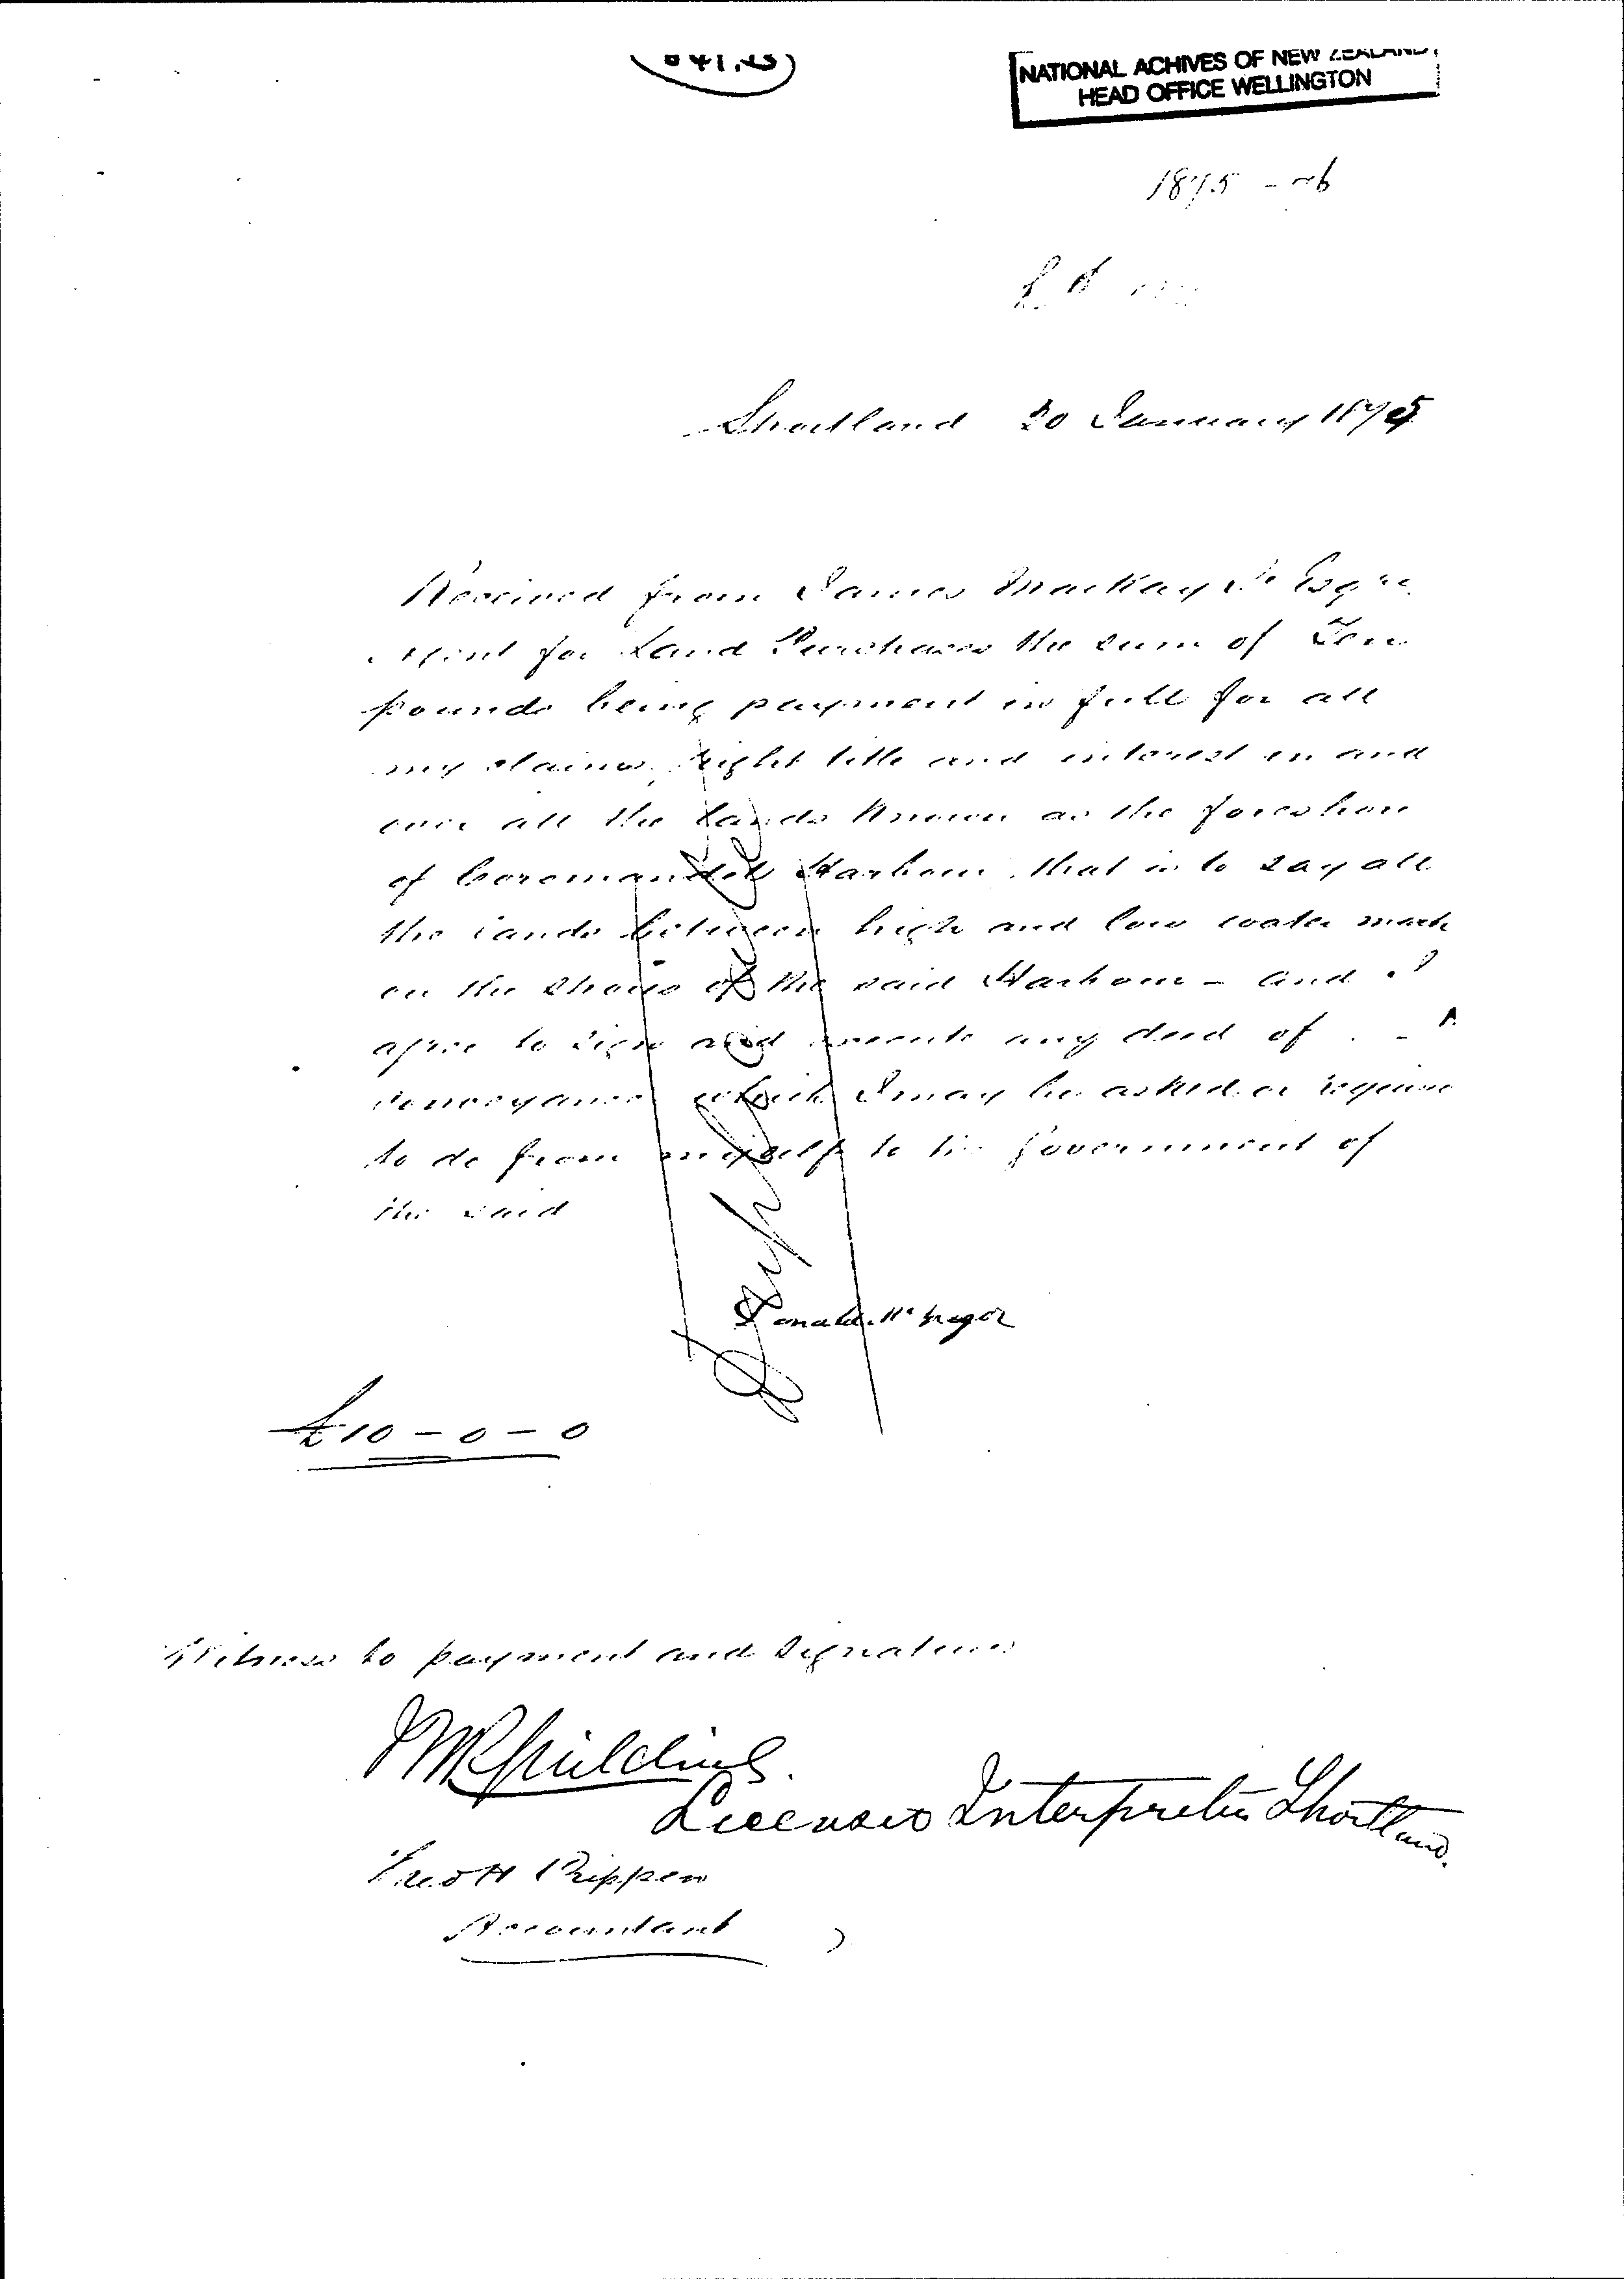 NATIONAL ACHIVES OF NEW ZEALAND
HEAD OFFICE WELLINGTON
1875
Shortland 20 January 1875
Received from James Mackay Jr Esqre
Agent for Land Purchases the sum of Ten
pounds being payment in full for all
my claims, right title and interest in and
over all the lands known as the foreshore
of Coromandel Harbour, that is to say all
the lands between high and low water mark
on the shores of the said Harbour - and I
agree to sign and execute any deed of
conveyance which I may be asked or require
to do from myself to the Government of
the said
Donald McGregor
£10-0-0
Witness to payment and signature
Licensed Interpreter Shortland.
Accountant